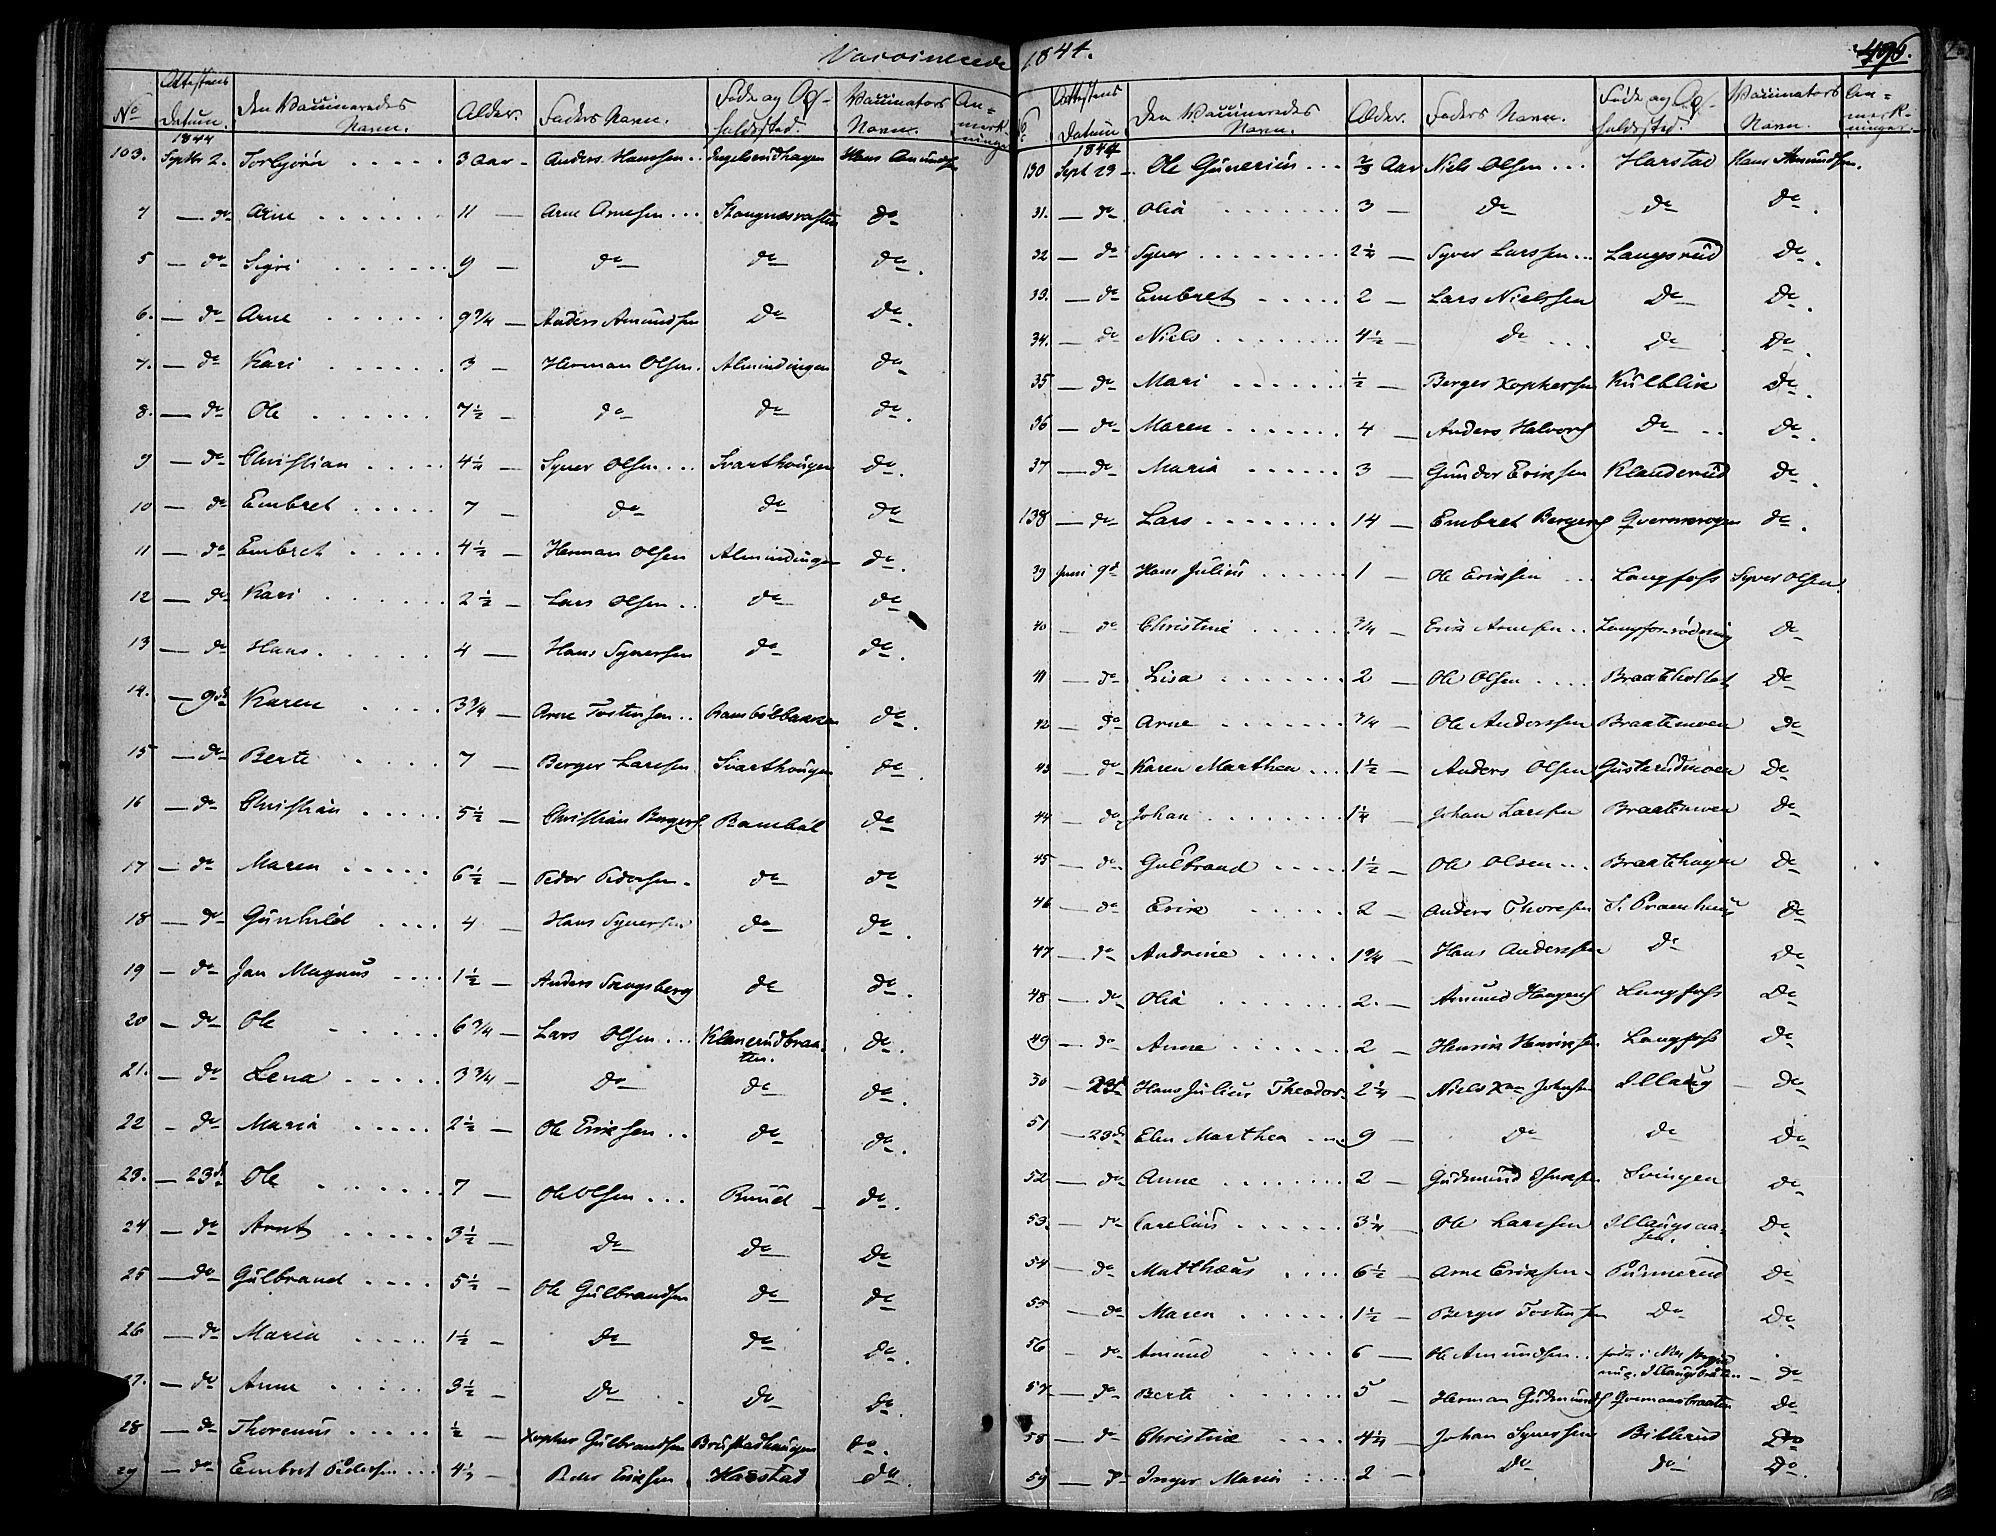 Vaccinerede 1844.
496.
No Attestens Datum. Den Vaccineredes Navn. Alder. Faders Navn. Føde og Op-holdssted. Vaccinators Navn. An-mærk-ninger
1844
103. Septbr 2. Torbjørn 3 Aar Anders Hansen Hans Amunds
4 — do Arne 11 — Arne Arnesen do
5 — do Sigri 9 — do do do
6. — do Arne 9 3/4 — Anders Amundsen do do
7. — do Kari 3 — Herman Olsen Almindingen do
8. — do Ole 7 1/2 — do do do
9 — do Christian 4 1/2 — Syver Olsen Svarthougen do
10 — do Embret 7 — do do do
11 — do Embret 4 1/2 — Herman Olsen Almindingen do
12 — do Kari 2 1/2 — Lars Olsen do do
13 — do Hans 4 — Hans Syversen do do
14. — 9de Karen 3 3/4 — Arne Tostensen Rambølbakken do
15 — do Berte 7 — Berger Larssen Svarthougen do
16 — do Christian 5 1/2 — Christian Bergers Rambøl do
17 — do Maren 6 1/2 — Peder Pedersen do do
18 — do Gunhild 4 — Hans Syversen do do
19 — do Jan Magnus 1 1/2 — Anders do do
20 — do Ole 6 3/4 — Lars Olsen Klanerudbraa-ten do
21. — do Lena 3 3/4 — do do do
22 — do Maria 2 1/2 — Ole Eriksen do do
23. — 23d Ole 7 — Ole Olsen Ruud do
24 — do Arnt 3 1/2 — do do do
25 — do Gulbrand 5 1/2 — Ole Gulbrandsen do do
26 — do Maria 1 1/2 — do do do
27. — do Anne 3 1/2 — do do do
28 — do Thorenus 1/2 — Xopher Gulbrandsen Brustadhaugen do
29 — do Embret Pedersen 4 1/2 — Peder Eriksen Harstad do
No Attestens Datum Den Vaccineredes Navn. Alder. Faders Navn. Føde og Op-holdssted. Vaccinators Navn. An-mærk-ninger.
1844
130 Sept 23 — Ole Gunerius 2/3 Aar Niels Olsen Harstad Hans Amundsen.
31. — do Olia 3 — do do do
32 — do Syver 2 1/4 — Syver Larssen Langsrud do
33. — do Embret 2 — Lars Nielssen do do
34. — do Niels 4 1/2 — do do do
35 — do Mari 1/2 — Berger Xophersen Kulblik do
36 — do Maren 4 — Anders Halvors do do
37 — do Maria 3 — Gunder Eriksen Klanderud do
138 — do Lars 14 — Embret Bergers do
39 Juni 9d Hans Julius 1 — Ole Eriksen Langfoss Syver Olsen
40 — do Christine 3/4 — Erik Arnesen do
41 — do Lisa 2 — Ole Olsen do
42 — do Arne 3/4 — Ole Anderssen Braatemoen do
43 — do Karen Marthea 1 1/2 — Anders Olsen Gusterudmoen do
44 — do Johan 1 1/4 Johan Larssen Braatemoen do
45 — do Gulbrand 1 1/2 — Ole Olsen Braatehagen do
46 — do Erik 2 — Anders Thoresen do
47 — do Andrine 1 3/4 — Hans Anderssen do do
48 — do Olia 2. — Amund Hagens Langfoss do
49 — do Anne 2 — Henrik Henriksen Langfoss do
50 — 23d Hans Julius Theodor 2 1/4 — Niels Xan Johnsen Illaug — do
51 — 23d Elen Marthea 9 — do do do
52 — do Anne 2 — Gudmund Svingen do
53 — do Carelius 3 1/4 — Ole Larssen Illaugsaa-sen. do
54 — do Matthæus 6 1/2 — Arne Eriksen Punnerud do
55 — do Maren 1 1/2 — Berger Tostensen do do
56 — do Amund 6 — Ole Amundsen født i Næs nu i Illaugsbraaten — do
57 — do Berte 5 Herman Gudmunds Qvernesbraaten do
58 — do Christine 4 1/4 — Johan Syverssen Billerud do
59 — do Inger Maria 2 — do do do